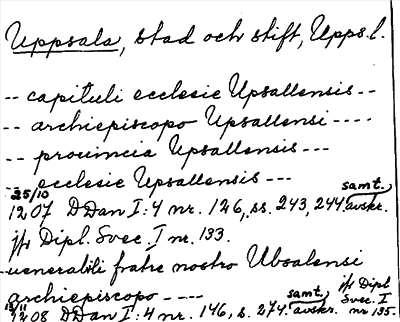 Uppsala, stad och stift, Upps. l.
-- capituli ecclesie Upsallensis --
-- archiepiscopo Upsallensi ----
-- prouincia Upsallensis ---
-- ecclesie Upsallensis ---
25/10 samt.
1207 DDan I:4 nr. 126, ss. 243, 244 avskr.
jfr Dipl. Svec. I nr. 133.
-uenerabili fratre nostro Ubsalensi
archiepiscopo ---- samt. jfr Dipl.
13/11 Svec. I
1208 DDan I:4 nr. 146, s. 274. avskr. nr 135.